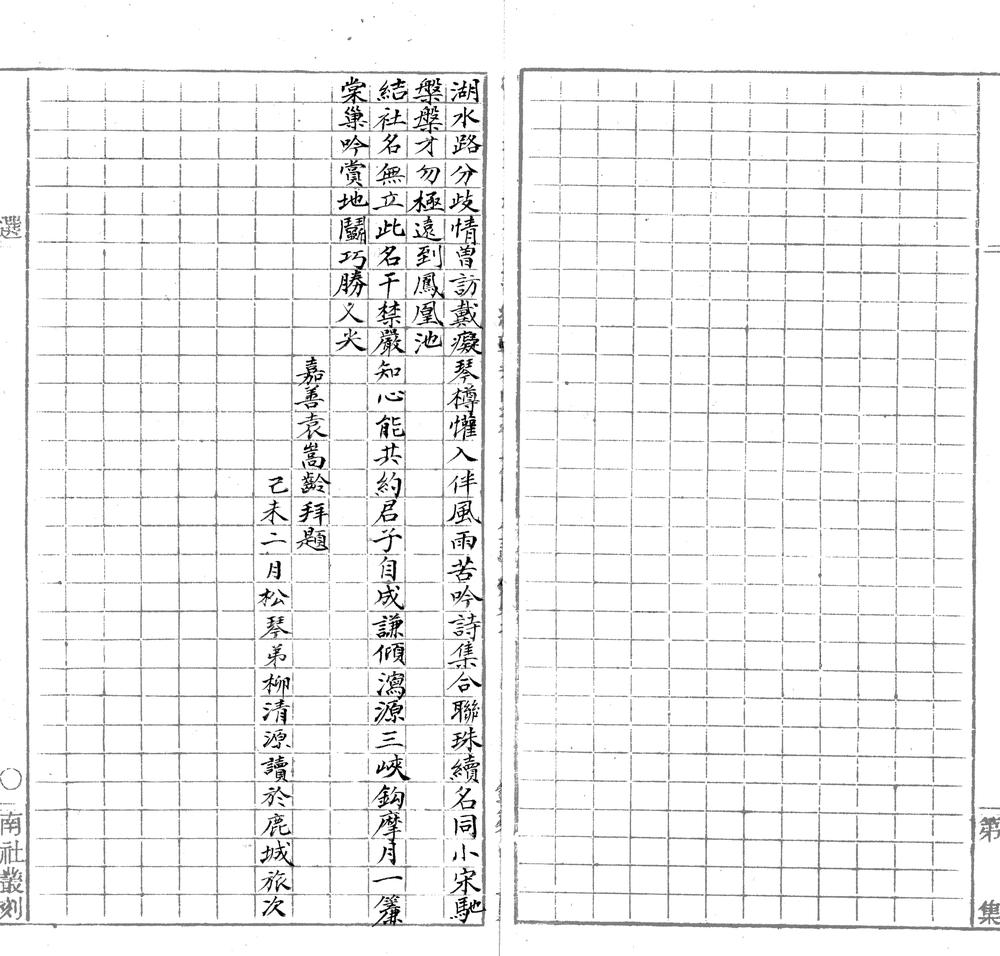 湖水路分歧情曾訪戴癡琴樽懽入伴風雨苦吟詩集合聯珠續名同小宋馳
槃槃才勿極遠到鳳凰池
結社名無立此名干禁嚴知心能共約君子自成謙傾瀉源三峽鈎摩月一簾
棠巢吟賞地鬬巧勝义尖
嘉善袁嵩齡拜題
己未二月松琴弟柳清源讀於鹿城旅次
第
集
選
〇南社叢刻